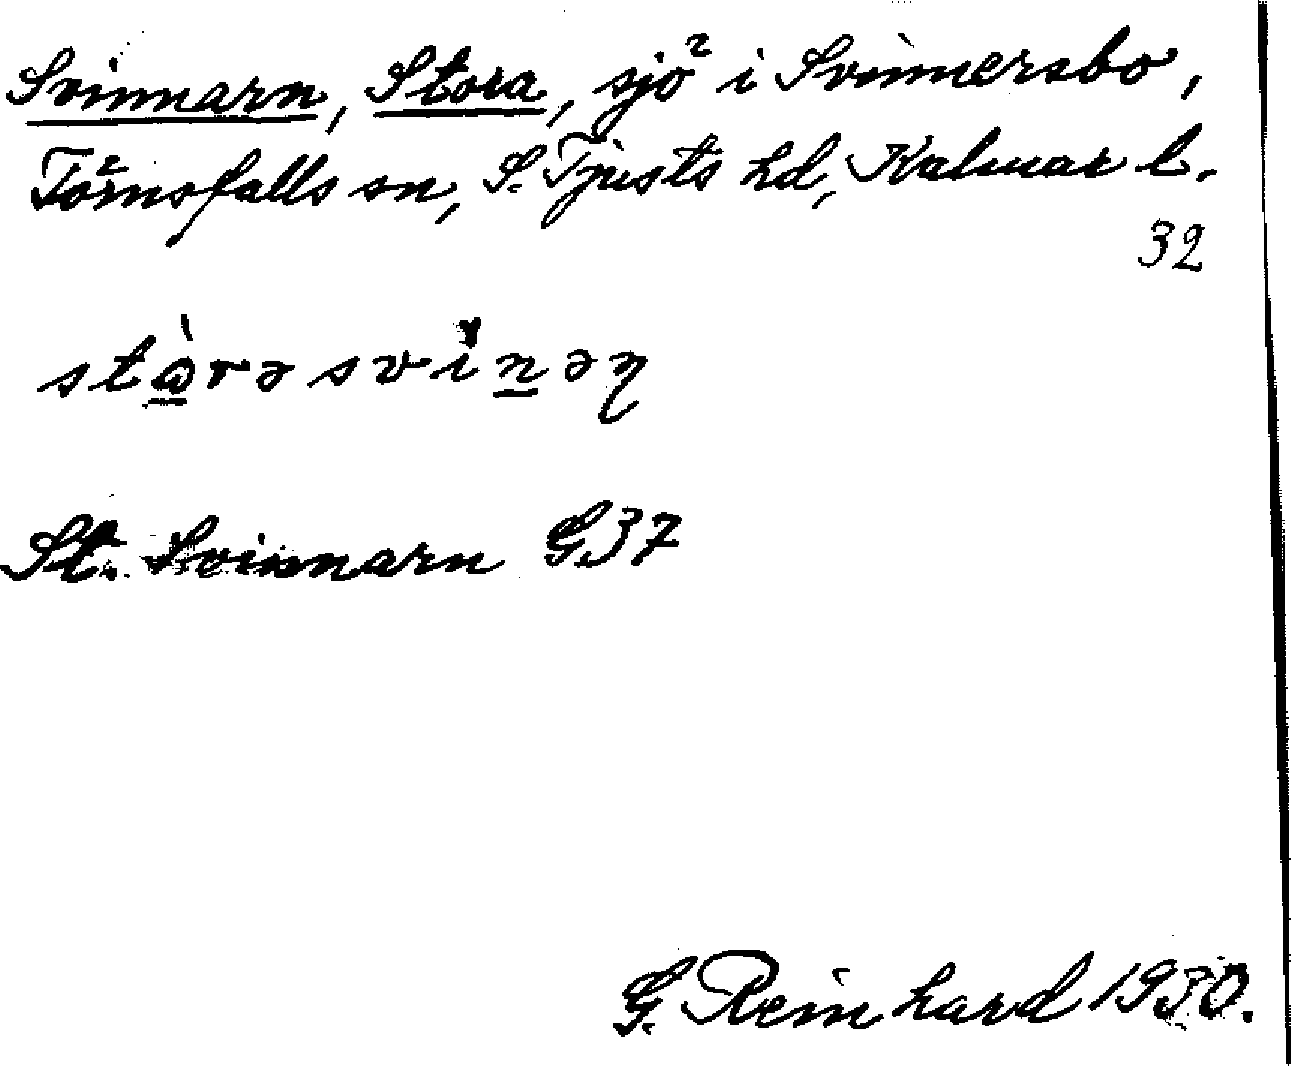 Svinnarn, Stora, sjö i Svinnersbo,
Törnsfalls sn, S. Tjusts hd, Kalmar l.
32
stò̱rə svìṉəɳ
St. Svinnarn G37
G. Reinhard 1930.